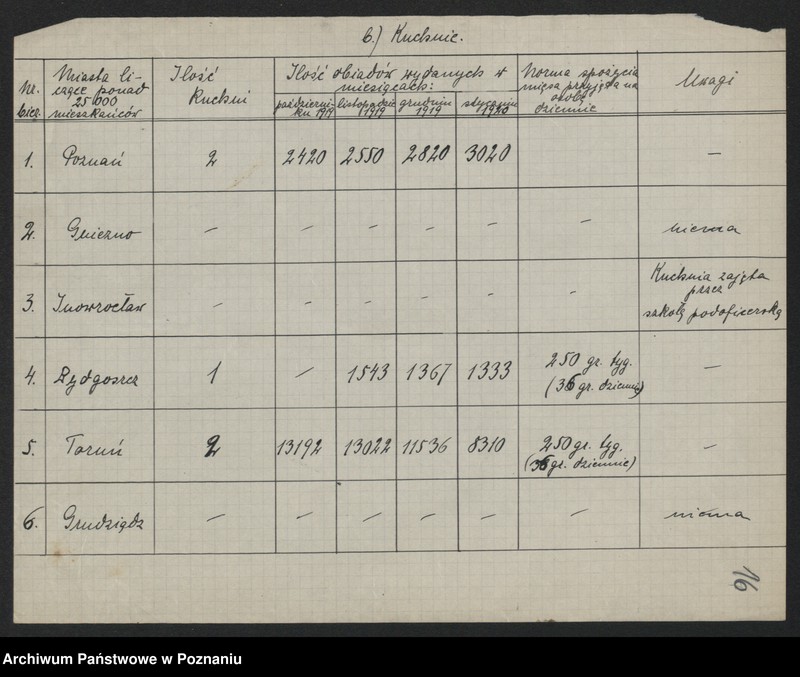 b.) Kuchnie.
Nr. bież.
Miasta liczące ponad 25000 mieszkańców
Ilość Kuchni
Ilość obiadów wydanych w miesiącach:
październiku 1919
listopadzie 1919
grudniu 1919
styczniu 1920
Norma spożycia mięsa przyjęta na osobę dziennie
Uwagi
1. Poznań 2 2420 2550 2820 3020 —
2. Gniezno — — — — — — niema
3. Inowrocław — — — — — — Kuchnia zajęta przez szkołę podoficerską
4. Bydgoszcz 1 — 1543 1367 1333 250 gr. tyg. (36 gr. dziennie) —
5. Toruń 2 13192 13022 11536 8310 250 gr. tyg. (36 gr. dziennie) —
6. Grudziądz — — — — — — niema
16
Archiwum Państwowe w Poznaniu